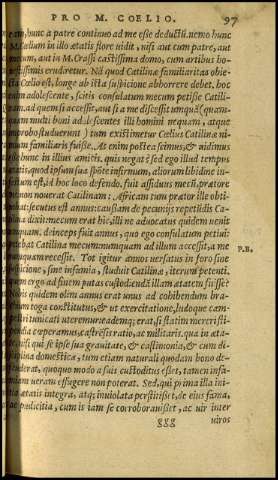 PRO M. COELIO. 97
eam, hunc a patre continuo ad me esse deductū. nemo hunc
M. Cælium in illo ætatis flore uidit, nisi aut cum patre, aut
mecum, aut in M. Crassi castissima domo, cum artibus ho-
nestissimis erudiretur. Nā quod Catilinæ familiaritas obie-
cta Cœlio est, longe ab ista suspicione abhorrere debet. hoc
enim adolescente, scitis consulatum mecum petisse Catili-
nam. ad quem si accessit, aut si a me discessit unquā (quan-
quam multi boni adolescentes illi homini nequam, atque
improbo studuerunt) tum existimetur Cœlius Catilinæ ni-
mium familiaris fuisse. At enim postea scimus, & uidimus
esse hunc in illius amicis. quis negat? sed ego illud tempus
ætatis, quod ipsum sua spōte infirmum, aliorum libidine in-
festum est, id hoc loco defendo. fuit assiduus mecū, prætore
me. non nouerat Catilinam: Africam tum prætor ille obti-
nebat: secutus est annus: caussam de pecunijs repetūdis Ca-
tilina dixit: mecum erat hic: illi ne aduocatus quidem uenit
unquam. deinceps fuit annus, quo ego consulatum petiui:
petebat Catilina mecum. nunquam ad illum accessit, a me
nunquam recessit. Tot igitur annos uersatus in foro sine
suspicione, sine infamia, studuit Catilinæ, iterum petenti.
quem ergo ad finem putas custodiendā illam ætatem fuisse?
Nobis quidem olim annus erat unus ad cohibendum bra-
chium toga constitutus, & ut exercitatione, ludoque cam-
pestri tunicati uteremur. eadēq; erat, si statim mereri sti-
pendia cœperamus, castrēsis ratio, ac militaris. qua in æta-
te, nisi qui se ipse sua grauitate, & castimonia, & cum di-
sciplina domestica, tum etiam naturali quodam bono de-
fenderat, quoquo modo a suis custoditus esset, tamen infa-
miam ueram effugere non poterat. Sed, qui prima illa ini-
tia ætatis integra, atq; inuiolata præstitisset, de eius fama,
ac pudicitia, cum is iam se corroborauisset, ac uir inter
P.B.
ggg uiros